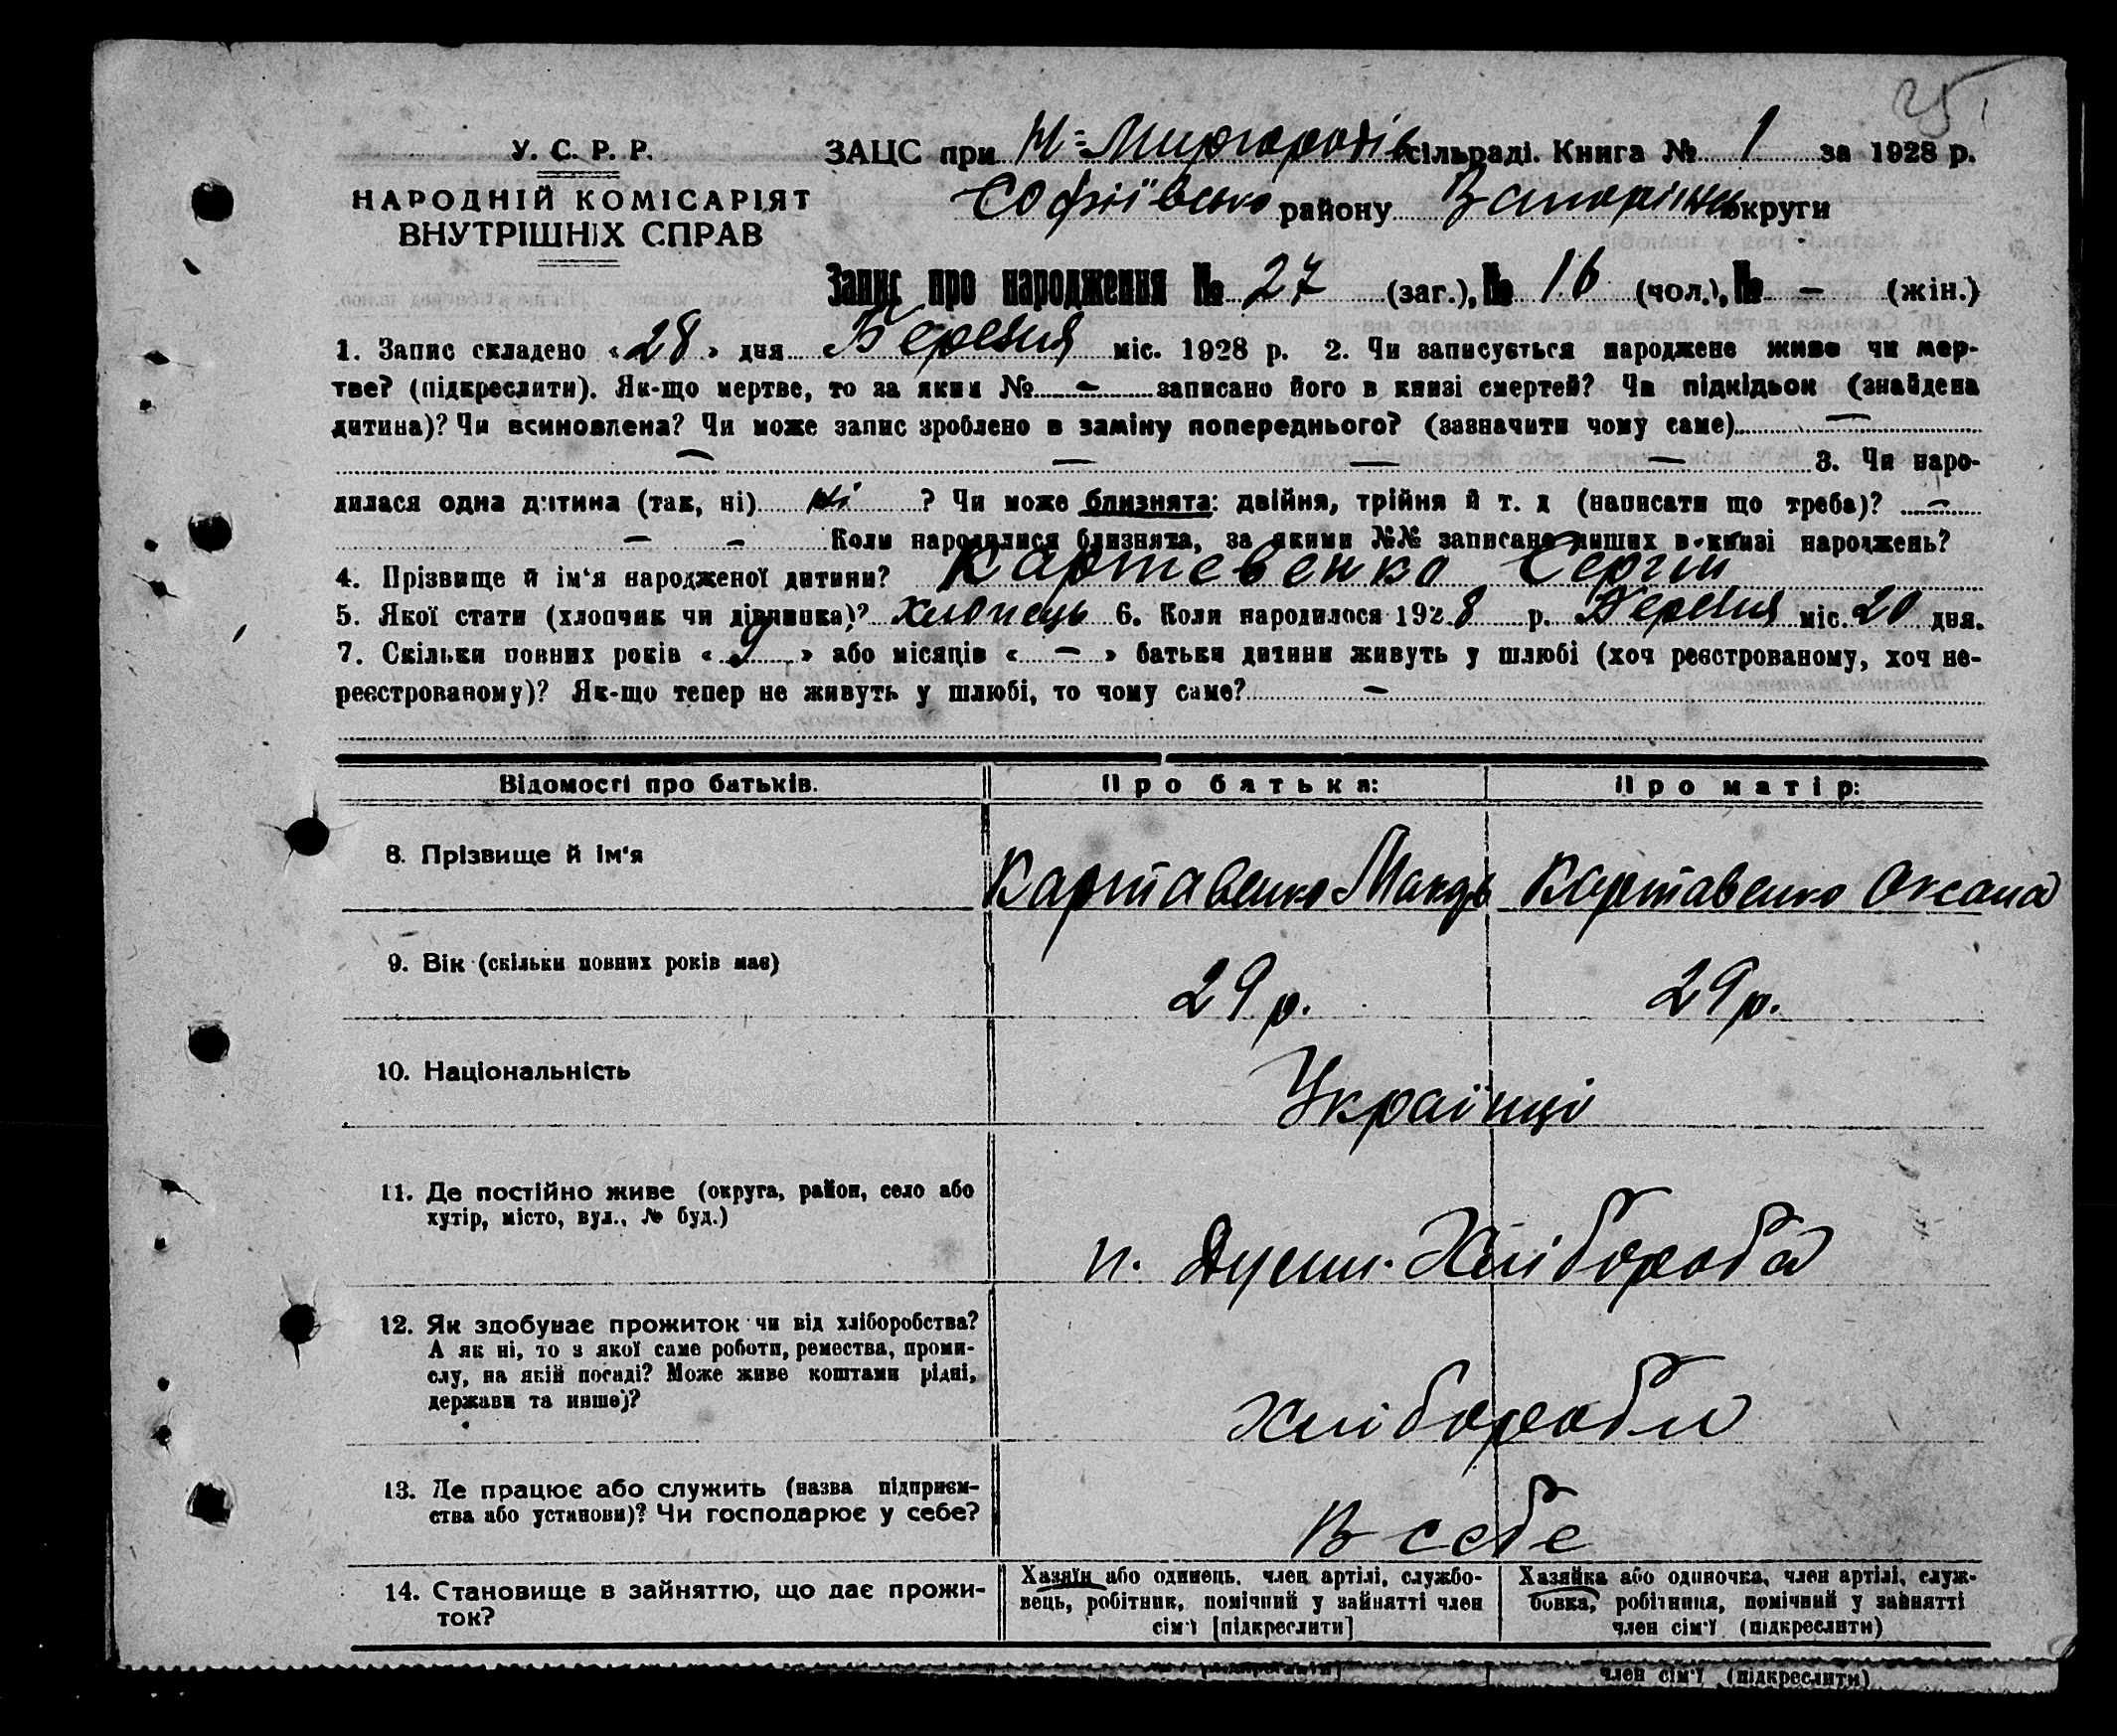 25
У. С. Р. Р.
НАРОДНІЙ КОМІСАРІЯТ
ВНУТРІШНІХ СПРАВ
ЗАЦС при Н-Миргородів сільраді. Книга № 1 за 1928 р.
Софіївсько району Запоріжж округи
Запис про народження № 27 (заг.), № 16 (чол.), № — (жін.)
1. Запис складено «28» дня Березня міс. 1928 р. 2. Чи записується народжене живе чи мер-
тве? (підкреслити). Як-що мертве, то за яким № — записано його в книзі смертей? Чи підкідьок (знайдена
дитина)? Чи всиновлена? Чи може запис зроблено в заміну попереднього? (зазначити чому саме) —
— — — — 3. Чи наро-
дилася одна дитина (так, ні) ні ? Чи може близнята: двійня, трійня й т. д (написати що треба)? —
— — Коли народилися близнята, за якими №№ записано инших в книзі народжень?
4. Прізвище й ім‘я народженої дитини? Картевенко Сергій
5. Якої стати (хлопчик чи дівчинка)? хлопець 6. Коли народилося 1928 р. Березня міс. 20 дня.
7. Скільки повних років «9» або місяців « — » батьки дитини живуть у шлюбі (хоч реєстрованому, хоч не-
реєстрованому)? Як-що тепер не живуть у шлюбі, то чому саме? —
Відомості про батьків. Про батька: Про матір:
8. Прізвище й ім‘я Картавенко Макар Картавенко Оксана
9. Вік (скільки повних років має) 29 р. 29 р.
10. Національність Українці
11. Де постійно живе (округа, район, село або
хутір, місто, вул., № буд.) п. Хлібороба
12. Як здобуває прожиток чи від хліборобства?
А як ні, то з якої саме роботи, ремества, проми-
слу, на якій посаді? Може живе коштами рідні,
держави та инше)? хлібороби
13. Де працює або служить (назва підприєм-
ства або установи)? Чи господарює у себе? В себе
14. Становище в зайняттю, що дає прожи-
ток?
Хазяїн або одинець, член артілі, службо-
вець, робітник, помічний у зайнятті член
сім‘ї [підкреслити]
Хазяйка або одиночка, член артілі, служ-
бовка, робітниця, помічний у зайнятті
член сім‘ї (підкреслити)
член сім‘ї (підкреслити)